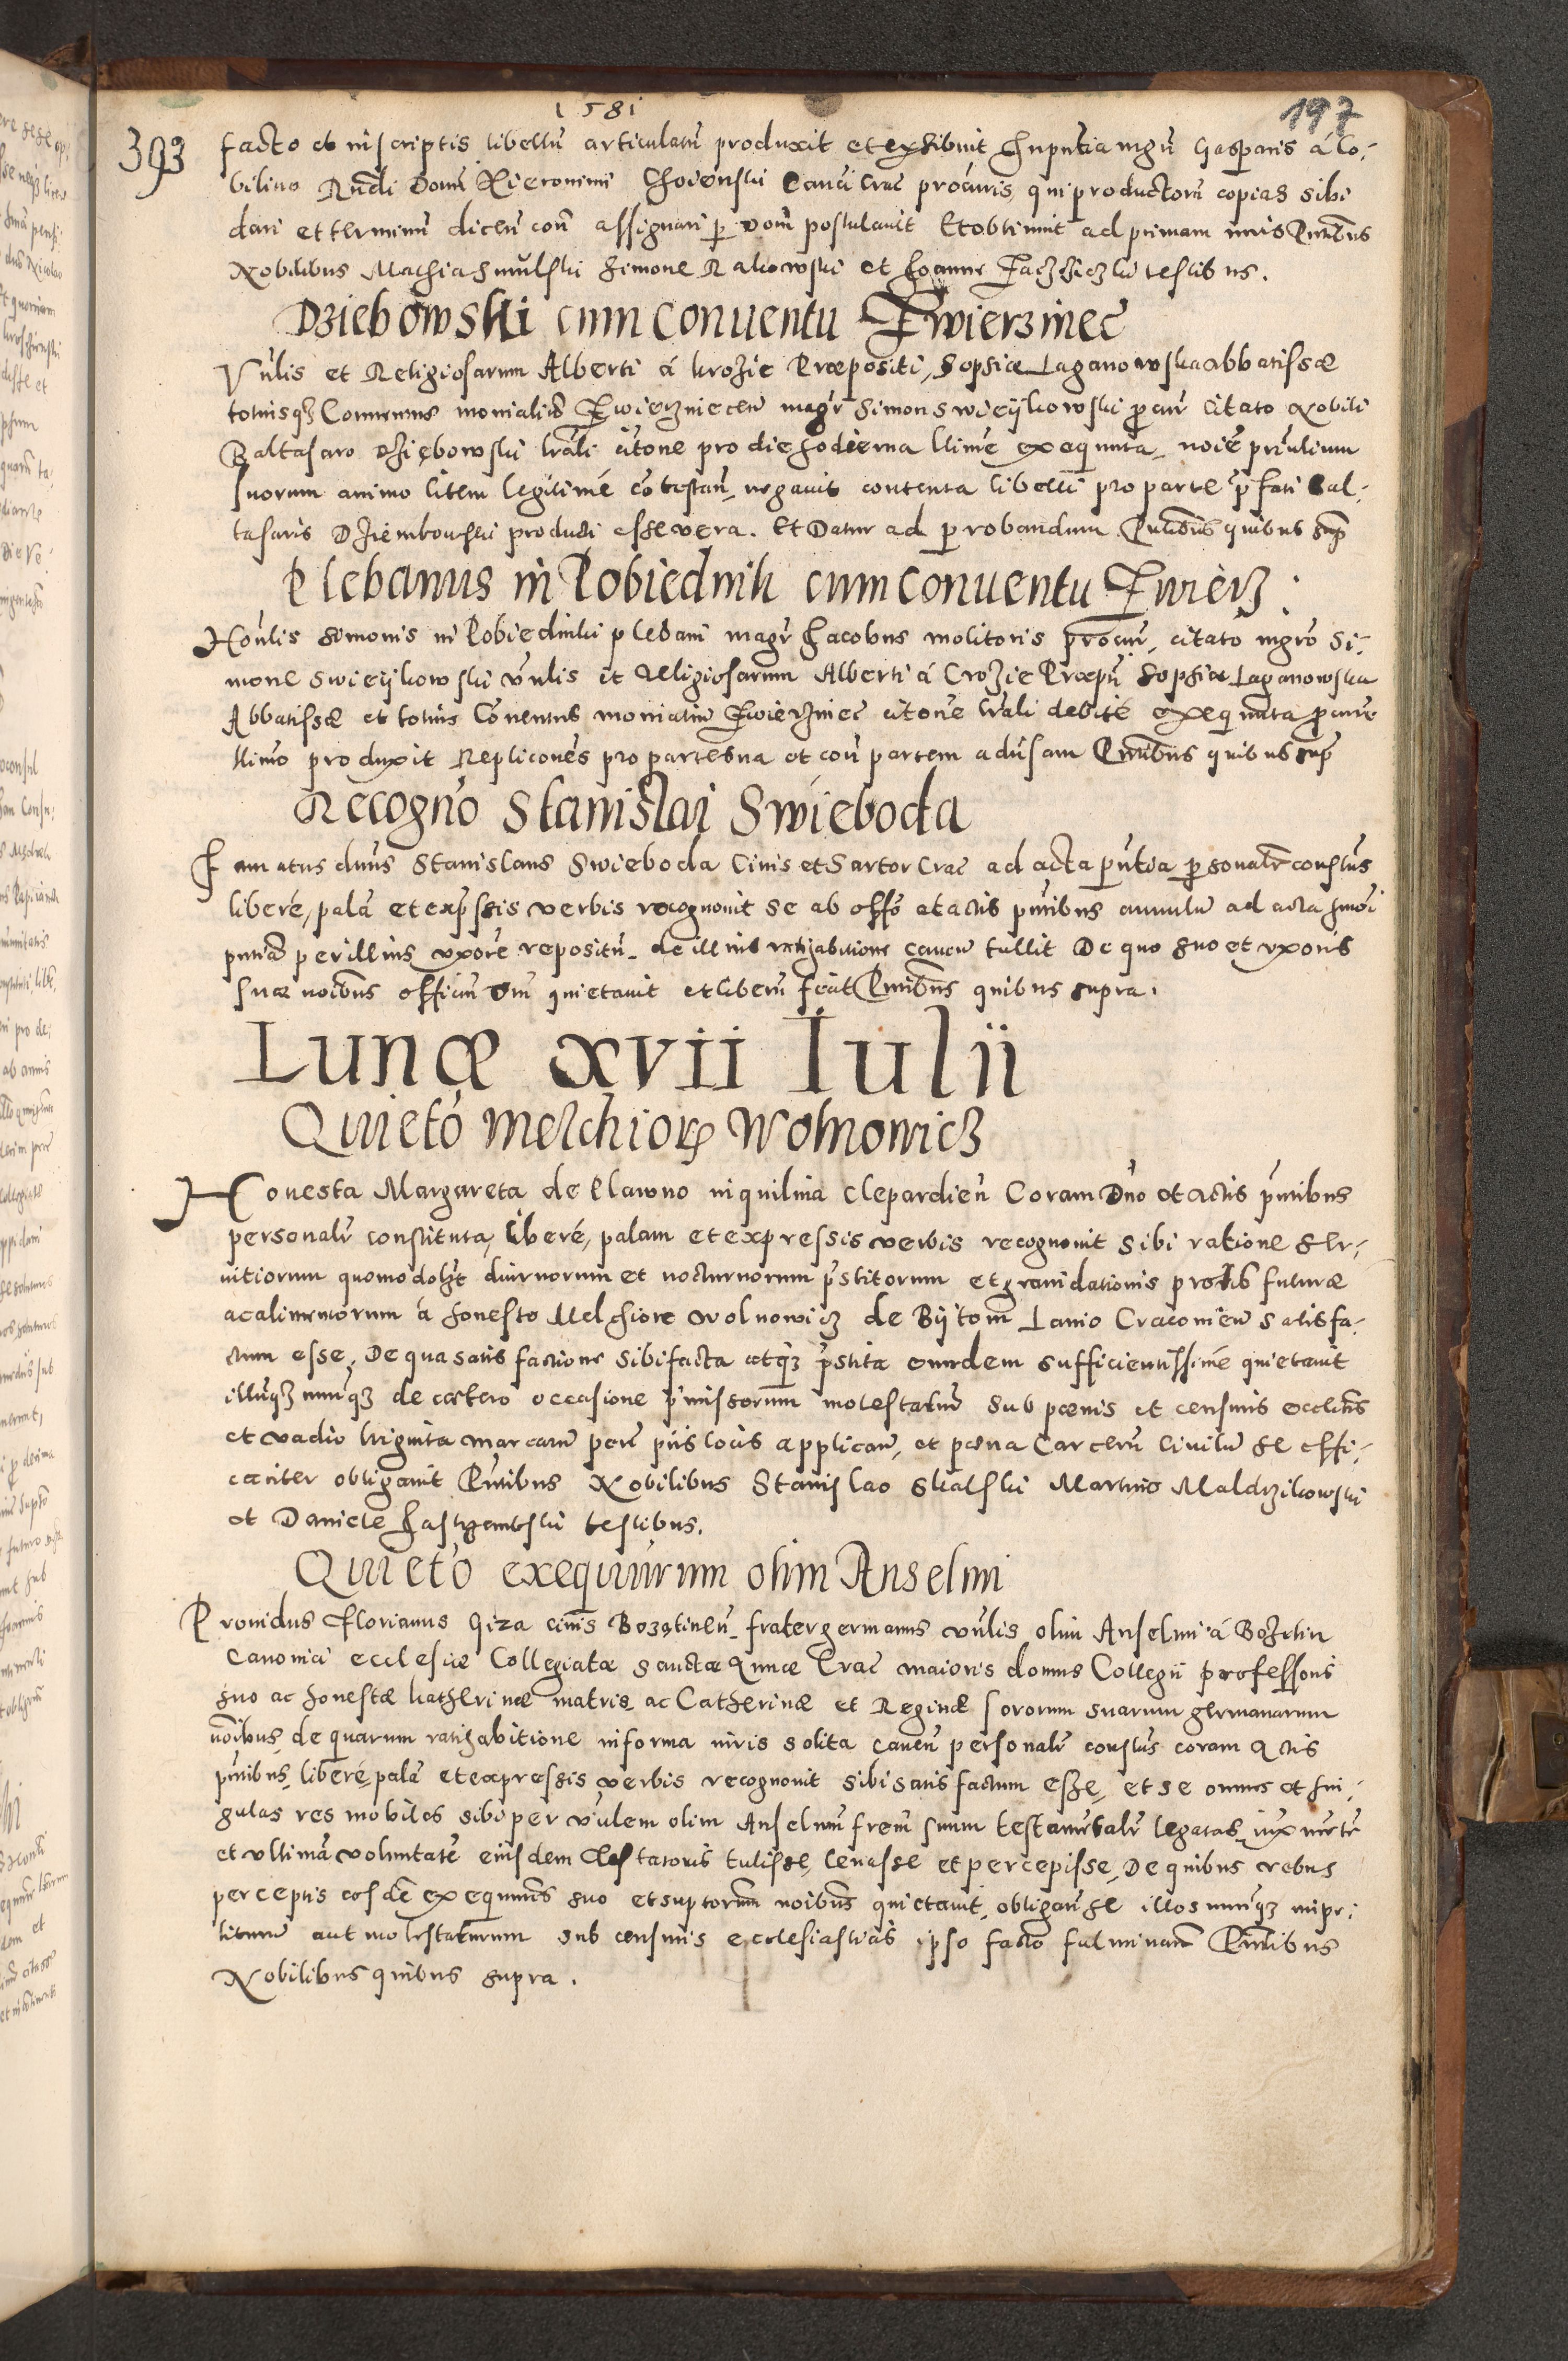 1581
197
393
facto et in scriptis libellū articulatū produxit et exhibuit In pñtia mgrī Gasparis á Lo-
bilino Rñdi Domī Hieronimi Choienski Canci Crac procuris, qui productorū copias sibi
dari et terminū dicen con assignari p vom postulauit Et obtinuit ad primam iuris Pñtibus
Nobilibus Mathia Smulski Simone Rakowski et Joanne testibus.
Dziebowski cum Conuentu Zwierzinec
Vñlis et Religiosarum Alberti á krozie Præpositi, Sophiæ Laganowska abbatissæ
totiusq3 Conuentus monialiū Zwierzniecen magr Simon Swieijkowski procur Citato Nobili
Baltasaro Dziębowski lrali citone pro die hodierna llime exequuta, noie prñlium
suorum animo litem legitimé cótestan, negauit contenta libelli pro parte pfati Bal-
tasaris Dziembowski producti esse vera. Et Datur ad probandum Pñtibus quibus sup
Plebanus in Pobiednik cum Conuentu Zwierz:
Hoñlis Simonis in Pobiedniki plebani magr Jacobus molitoris procur, citato mgro Si-
mone Swieijkowski vñlis et Religiosarum Alberti á Crozie Præpti Sophiæ Laganowska
Abbatissæ et totius Conuentus monialiū Zwierziniec citone lrali debité exequuta procure
llimo produxit Replicones pro parte sua et con partem aduˢam Pñtibus quibus sup
Recogno Stanislai Swieboda
Famatus dnus Stanislaus Swieboda Ciuis et Sartor Crac ad acta pñtia personalr constus
liberé, palā et expssis verbis recognouit se ab offo et actis pñtibus annulū ad acta hmoi
pñtia per illius vxore repositū, de illius ratihabitione cauen tullit De quo suo et vxoris
suæ noibus officiū Dni quietauit et liberū fecit Pñtibus quibus supra.
Lunæ xvii Iulii
Quieto Melchioris Wolnowicz
Honesta Margareta de Plawno inquilina Clepardien Coram Dño et actis pñtibus
personalr constituta, liberé, palam et expressis verbis recognouit sibi ratione ser-
uitiorum quomodolibet diurnorum et nocturnorum pstitorum et grauidationis prolis futuræ
ac alimentorum á honesto Melchiore Wolnowicz de Bijtom Lanio Cracouien satisfa-
ctum esse, De qua satisfactione sibi facta atq3 pstita eundem sufficientissimé quietauit
illūq3 nunq3 de cætero occasione pmissorum molestaturū sub pœnis et censuris ecclicis
et vadio triginta marcarū peccu piis locis applicand, et pœna Carcerū Ciuiliū se effi-
caciter obligauit Pñtibus Nobilibus Stanislao Skalski Martino Maldrzikowski
et Daniele Jastrzembski testibus.
Quieto exequutorum olim Anselmi
Prouidus Florianus Giza ciuis Bozętinen, frater germanus vñlis olim Anselmi á Bozetin
Canonici ecclesiæ Collegiatæ Sanctæ Annæ Crac maioris domus Collegii professoris
suo ac honestæ Catherinæ matris, ac Catherinæ et Reginæ sororum suarum germanarum
noibus, de quarum ratihabitione in forma iuris solita cauen personalr constus coram Actis
pñtibus, liberé, palā et expressis verbis recognouit sibi satisfactum esse, et se omnes et sin-
gulas res mobiles sibi per vñlem olim Anselmū frem suum testamentalr legatas, iux mente
et vltimā voluntate eiusdem testatoris tulisse, leuasse et percepisse, De quibus rebus
perceptis eosdē exequutores suo et suptorum noibus quietauit, obligan se illos nunq3 impe-
titurū aut molestaturum sub censuris ecclesiasticis ipso facto fulminand Pñtibus
Nobilibus quibus supra.